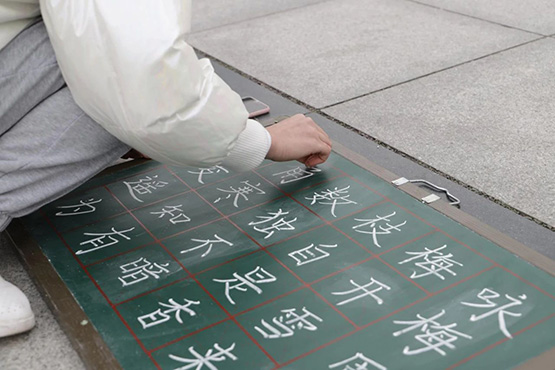 角数枝梅咏
寒独自开梅
遥知不是雪
为有暗香来